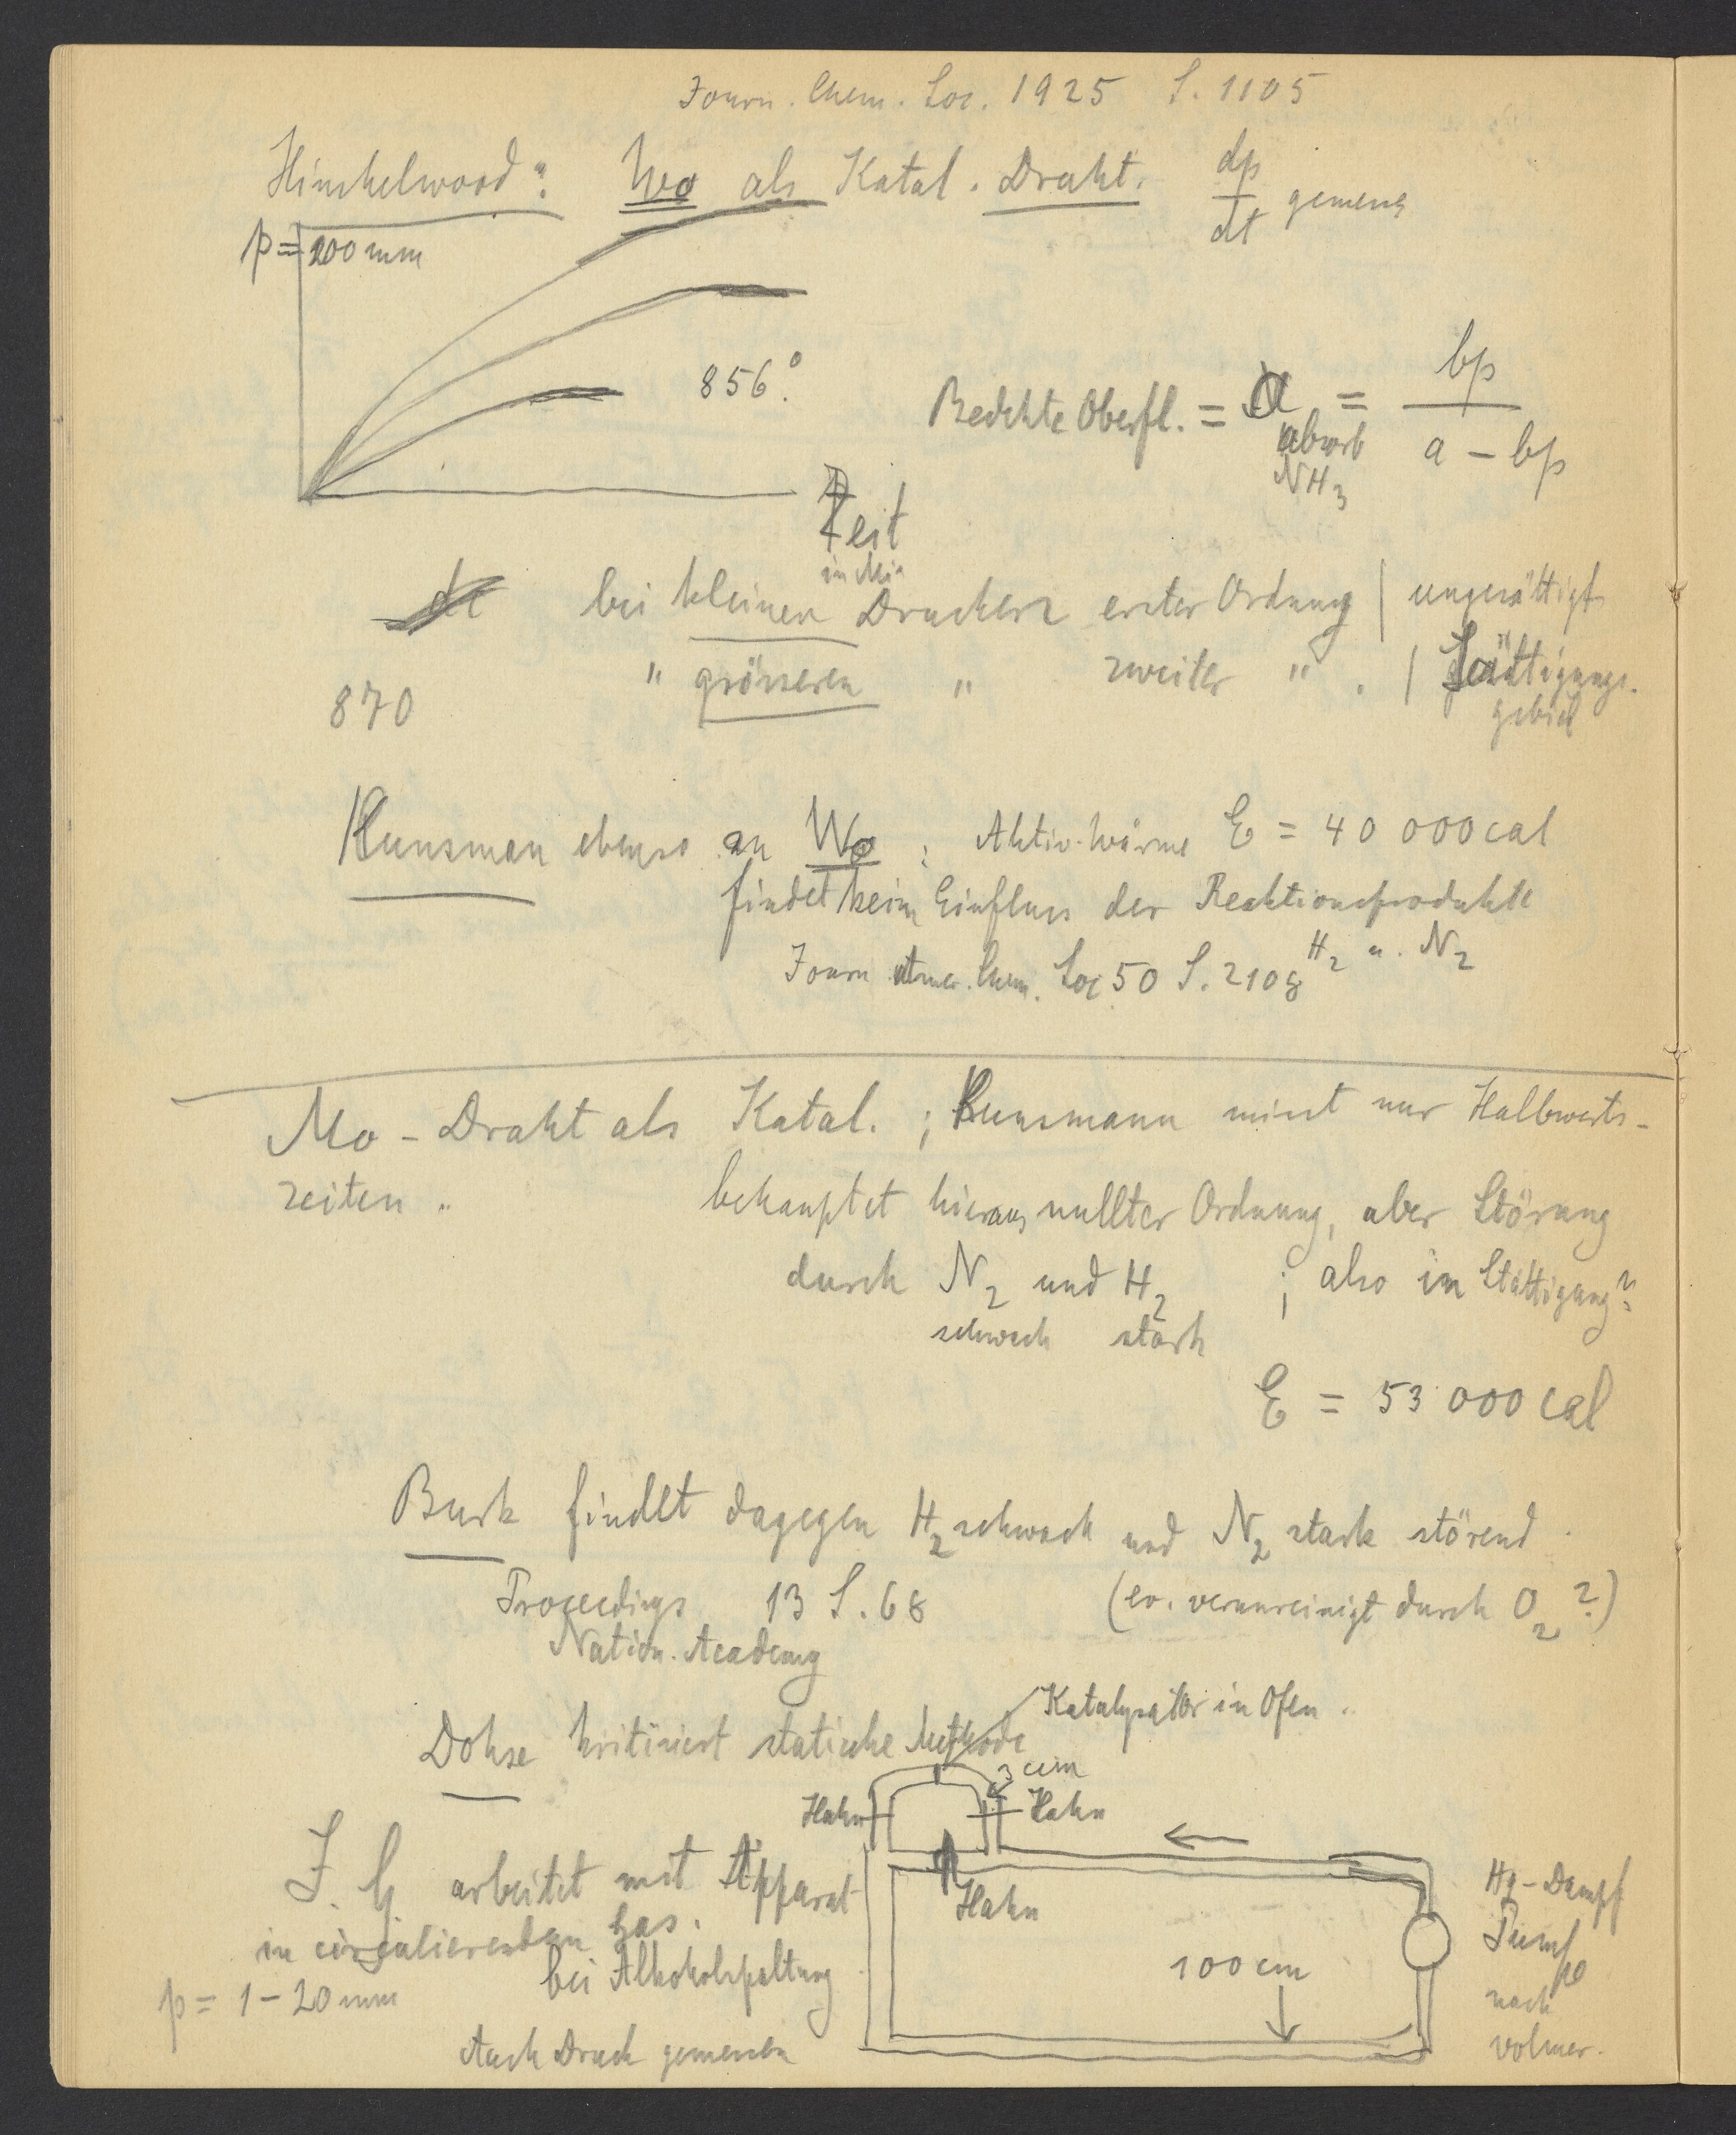 Journ. Chem. Soc. 1925 S. 1105
Hinshelwood: Wo als Katal. Draht. dp/dt gemess
p = 200 mm
856°.
Bedekte Oberfl. = α = bp / a - bp
absorb
NH3
Zeit
in Min
bei kleinen Drucken erster Ordnung | ungesättigt
" grösseren " zweiter " . | Sättigungs-
gebiet
870
Kunsman ebenso an Wo; Aktiv. Wärme E = 40 000 cal
findet kein Einfluss der Reaktionsprodukte
H2 u. N2
Journ Amer. Chem. Soc 50 S. 2108
Mo - Draht als Katal. ; Kunsmann misst nur Halbwerts-
zeiten.. behauptet hieraus nullter Ordnung, aber Störung
durch N2 und H2 ; also im Sättigung?
schwach stark
E = 53 000 cal
Burk findet dagegen H2 schwach und N2 stark störend.
Proceedings 13 S. 68 (ev. verunreinigt durch O2?)
Nation. Academy
Katalysator in Ofen..
Dohse kritisiert statische Methode
3 cm
Hahn Hahn
I. G. arbeitet mit Apparat
in circulierendem Gas.
bei Alkoholspaltung
p = 1 - 20 mm
Auch Druck gemessen
Hahn
100 cm
Hg - Dampf
Pumpe
nach
Volmer.